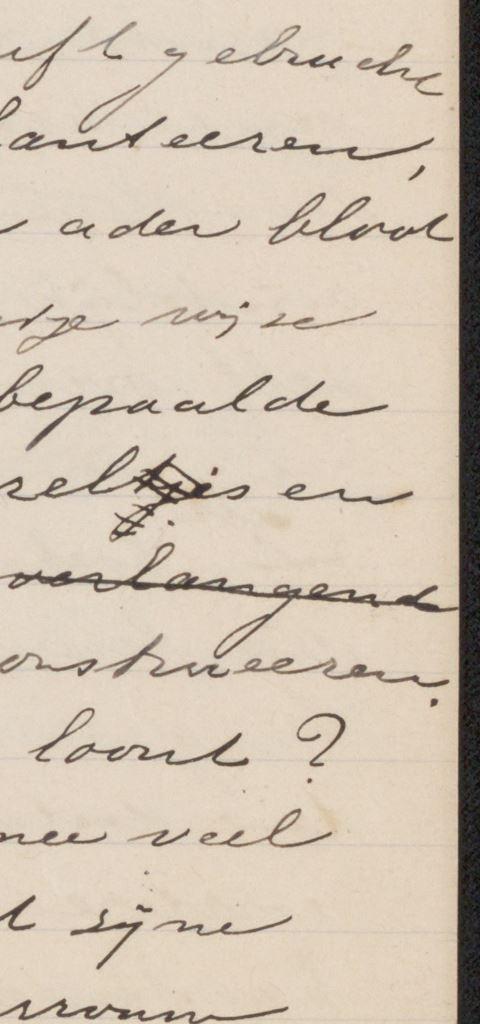 gebruche
lanteeren,
ader bloot
wijse
bepaalde
en
verlangend
onstrueeren.
loont ?
mee veel
t syne
vrouw